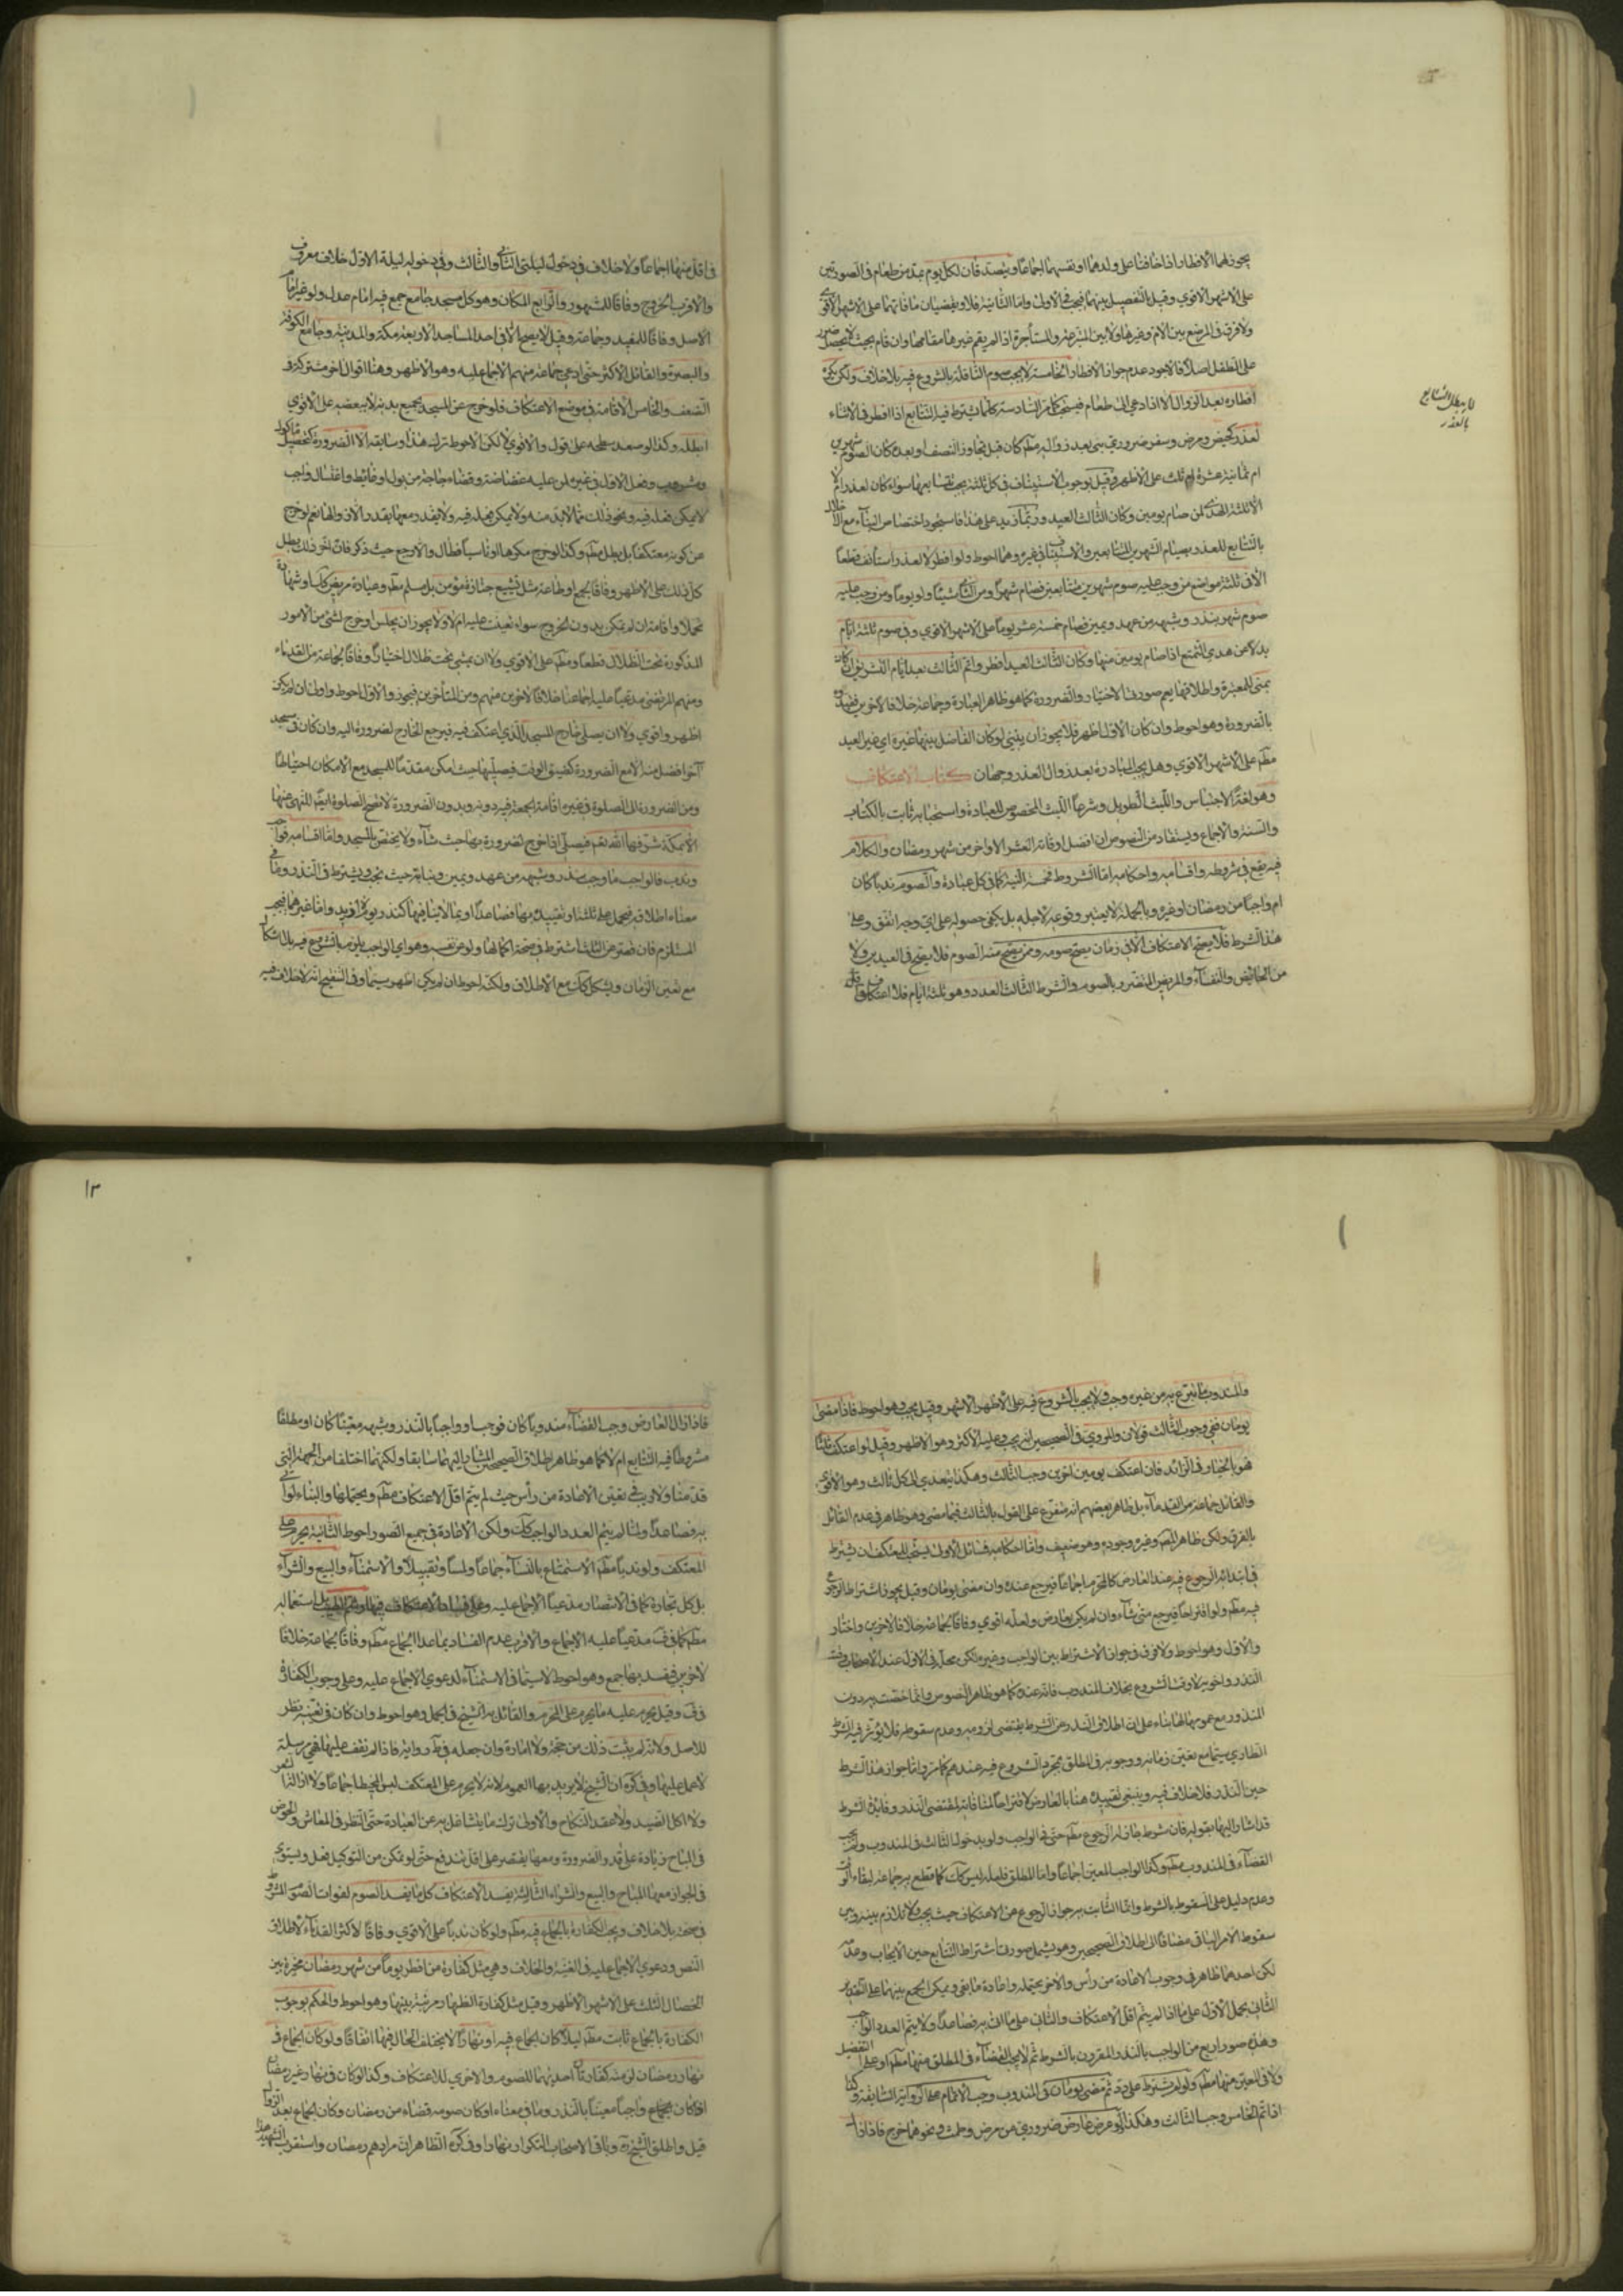 يجوز لهما الافطار اذا خافتا على ولدهما او نفسهما اجماعا ويتصدقان لكل يوم بمد من طعام في الصورتين
على الاشهر الاقوى وقيل بالتفصيل بينهما فيجب في الاولى واما الثانية فلا ويقضيان ما فاتهما على الاشهر الاقوى
ولا فرق في المرضع بين الام وغيرها ولا بين المتبرعة والمستأجرة اذا لم يقم غيرها مقامها وان قام بحيث لا يحصل ضرر
على الطفل اصلا فالاجود عدم جواز الافطار الخامسة لا يجب صوم النافلة بالشروع فيه بلا خلاف ولكن يكره
افطاره بعد الزوال الا اذا دعي الى طعام فيستحب كما مر السادسة كلما يشترط فيه التتابع اذا افطر في الاثناء
لعذر كحيض ومرض وسفر ضروري بنى بعد زواله مطم كان قبل تجاوز النصف او بعده كان الصوم شهرين
ام ثمانية عشرة ام ثلث على الاظهر وقيل بوجوب الاستيناف في كل ثلثة يجب تتابعها سواء كان لعذر ام لا
الا ثلثة الهدى لمن صام يومين وكان الثالث العيد
بالتتابع للعذر بصيام الشهرين المتتابعين والاستيناف في غيره وهما احوط ولو افطر لا لعذر استأنف قطعا
الا في ثلثة مواضع من وجب عليه صوم شهرين متتابعين فصام شهرا ومن الثاني شيئا ولو يوما ومن وجب عليه
صوم شهر بنذر وشبهه من عهد ويمين فصام خمسة عشر يوما على الاشهر الاقوى وفي صوم ثلثة ايام
بدلا عن هدي التمتع اذا صام يومين منها وكان الثالث العيد افطر واتم الثالث بعد ايام التشريق ان كان
بمنى للمعتبرة واطلاقها يعم صورتي الاختيار والضرورة كما هو ظاهر العبارة وجماعة خلافا لاخرين فقيدوه
بالضرورة وهو احوط وان كان الاول اظهر فلا يجوز ان يبني لو كان الفاصل بينهما غيره اي غير العيد
مطم على الاشهر الاقوى وهل يجب المبادرة بعد زوال العذر وجهان كتاب الاعتكاف
وهو لغة الاحتباس واللبث الطويل وشرعا اللبث المخصوص للعبادة واستحبابه ثابت بالكتاب
والسنة والاجماع ويستفاد من النصوص ان افضل اوقاته العشر الاواخر من شهر رمضان والكلام
فيه يقع في شروطه واقسامه واحكامه اما الشروط فخمسة النية كما في كل عبادة والصوم ندبا كان
ام واجبا من رمضان او غيره وبالجملة لا يعتبر وقوعه لاجله بل يكفي حصوله على اي وجه اتفق وعلى
هذا الشرط فلا يصح الاعتكاف الا في زمان يصح صومه وممن يصح منه الصوم فلا يصح في العيدين ولا
من الحائض والنفساء والمريض المتضرر بالصوم والشرط الثالث العدد وهو ثلثة ايام فلا اعتكاف
لا يبطل التتابع
بالعذر
في اقل منها اجماعا ولا خلاف في دخول ليلتي الثاني والثالث وفي دخول ليلة الاول خلاف معروف
والاقرب الخروج وفاقا للمشهور والرابع المكان وهو كل مسجد جامع جمع فيه امام عدل ولو غير امام
الاصل وفاقا للمفيد وجماعة وقيل لا يصح الا في احد المساجد الاربعة مكة والمدينة وجامع الكوفة
والبصرة والقائل الاكثر حتى ادعي جماعة منهم الاجماع عليه وهو الاظهر وهنا اقوال اخر مشتركة في
الضعف والخامس الاقامة في موضع الاعتكاف فلو خرج عن المسجد بجميع بدنه لا ببعضه على الاقوى
ابطله وكذا لو صعد سطحه على قول والاقوى لا لكن الاحوط تركه هذا وسابقه الا لضرورة كتحصيل مأكول
ومشروب وفعل الاول في غيره لمن عليه غضاضة وقضاء حاجة من بول او غائط واغتسال واجب
لا يمكن فعله فيه ونحو ذلك مما لا بد منه ولا يمكن فعله فيه ولا يقدر معها بقدر الا زوالها نعم لو خرج
عن كونه معتكفا بطل مطم وكذا لو خرج مكرها او ناسيا فطال والا رجع حيث ذكر فان اخر ذلك بطل
كل ذلك على الاظهر وفاقا لجمع او طاعة مثل تشييع جنازة مؤمن بل مسلم مطم وعيادة مريض كك او شهادة
تحملا واقامة ان لم يمكن بدون الخروج سواء تعينت عليه ام لا ولا يجوز ان يجلس لو خرج لشئ من الامور
المذكورة تحت الظلال قطعا ومطم على الاقوى ولا ان يمشي تحت ظلال اختيارا وفاقا لجماعة من القدماء
ومنهم المرتضى مدعيا عليه اجماعنا خلافا لاخرين منهم ومن المتأخرين فيجوز والاول احوط وان لم يكن
اظهر واقوى ولا ان يصلي خارج المسجد الذي اعتكف فيه فيرجع الخارج لضرورة اليه وان كان في مسجد
آخر افضل منه الا مع الضرورة كضيق الوقت فيصليها حيث امكن مقدما للمسجد مع الامكان احتياطا
ومن الضرورة الى الصلوة في غيره اقامة الجمعة فيه دونه وبدون الضرورة لا تصح الصلوة ايضا للنهي عنها
الا بمكة شرفها الله تعم فيصلي اذا خرج لضرورة بها حيث شاء ولا يختص بالمسجد واما اقسامه فواجب
وندب فالواجب ما وجب بنذر وشبهه من عهد ويمين ونيابة حيث تجب ويشترط في النذر وما في
معناه اطلاقه فيحمل على ثلثة او تقييده بها فصاعدا او بما لا ينافيها كنذر يوم لا ازيد واما غيرهما فيجب
المستلزم فان قصر عن الثلثة اشترط في صحته اكمالها ولو من نفسه وهو اي الواجب يلزم بالشروع فيه بلا اشكال
مع تعين الزمان ويشكل كك مع الاطلاق ولكنه احوط ان لم يكن اظهر سيما وفي التنقيح انه لا خلاف فيه
والمندوب ما تبرع به من غير وجوب ولا يجب بالشروع فيه على الاظهر الاشهر وقيل يجب وهو احوط فاذا مضى
يومان ففي وجوب الثالث قولان والمروي في الصحيحين انه يجب وعليه الاكثر وهو الاظهر وقيل لو اعتكف ثلثا
فهو بالخيار في الزائد فان اعتكف يومين اخرين وجب الثالث وهكذا يتعدى الى كل ثالث وهو الاقوى
والقائل جماعة من القدماء بل ظاهر بعضهم انه متفرع على القول بالثالث فيما مضى وهو ظاهر في عدم القائل
بالفرق ولكن ظاهر المصم وغيره وجوده وهو ضعيف واما احكامه فمسائل الاولى يستحب للمعتكف ان يشترط
في ابتدائه الرجوع فيه عند العارض كالمحرم اجماعا فيرجع عنده وان مضى يومان وقيل يجوز اشتراط الرجوع
فيه مطم ولو اقتراحا فيرجع متى شاء وان لم يكن بعارض ولعله اقوى وفاقا لجماعة خلافا لاخرين واختار
والاول وهو احوط ولا فرق في جواز الاشتراط بين الواجب وغيره لكن محله في الاول عند
النذر واخويه لا وقت الشروع بخلاف المندوب فانه عنده كما هو ظاهر النصوص وانما خصت به دون
المنذور مع عمومها لها بناء على ان اطلاق النذر عن الشرط يقتضي لزومه وعدم سقوطه فلا يؤثر فيه الشرط
الطاري سيما مع تعين زمانه ووجوبه في المطلق بمجرد الشروع فيه عندهم كما مر واما جواز هذا الشرط
حين النذر فلا خلاف فيه وينبغي تقييده هنا بالعارض لا اقتراحا لمنافاته لمقتضى النذر وفائدة الشرط
قد اشار اليها بقوله فان شرط جاز له الرجوع مطم حتى في الواجب ولو بدخول الثالث في المندوب ولم يجب
القضاء في المندوب مطم وكذا الواجب المعين اجماعا واما المطلق فلعله ليس كك كما قطع به جماعة لبقاء الوقت
وعدم دليل على السقوط بالشرط وانما الثابت به جواز الرجوع عن الاعتكاف حيث يجب ولا تلازم بينه وبين
سقوط الامر الباقي مضافا الى اطلاق الصحيحين وهو يشمل صورتي اشتراط التتابع حين الايجاب وعدمه
لكن احدهما ظاهر في وجوب الاعادة من رأس والاخر يحتمله واعادة ما بقي ويمكن الجمع بينهما على التقدير
الثاني بحمل الاول على ما اذا لم يتم اقل الاعتكاف والثاني على ما اتى به فصاعدا ولا يتم العدد الواجب
وهذه صور اربع من الواجب بالنذر المقرون بالشرط ثم لا يجب القضاء في المطلق منها مطم او على التفصيل
ولا في المعين منهما مطم ولو لم يشترط على ربه ثم مضى يومان في المندوب وجب الاتمام
اذا تم الخامس وجب الثالث وهكذا لو عرض عارض ضروري من مرض وطمث ونحوهما خرج فاذا زا
۱۳
فاذا زال العارض وجب القضاء مندوبا كان فوجب او واجبا بالنذر وشبهه معينا كان او مطلقا
مشروطا فيه التتابع ام لا كما هو ظاهر اطلاق الصحيحين المشار اليهما سابقا ولكنهما اختلفا من الجهة التي
قدمنا ولا ريب في تعين الاعادة من رأس حيث لم يتم اقل الاعتكاف مطم ويحتملها والبناء لو اتى
به فصاعدا ولما لم يتم العدد الواجب كك ولكن الاعادة في جميع الصور احوط الثانية يحرم على
المعتكف ولو ندبا مطم الاستمتاع بالنساء جماعا ولمسا وتقبيلا والاستمناء والبيع والشراء
بل كل تجارة كما في الانتصار مدعيا الاجماع عليه وعلى فساد الاعتكاف بها وشم الطيب بل استعماله
مطم كما في ف مدعيا عليه الاجماع والاقرب عدم الفساد بما عدا الجماع مطم وفاقا لجماعة خلافا
لاخرين فيفسد بها جمع وهو احوط لا سيما في الاستمناء لدعوى الاجماع عليه وعلى وجوب الكفارة
في ف وقيل يحرم عليه ما يحرم على المحرم والقائل به الشيخ في الجمل وهو احوط وان كان في تعينه نظر
للاصل ولانه لم يثبت ذلك من حجة ولا امارة وان جعله في ط رواية فاذا لم نقف عليها فهي مرسلة
لا عمل عليها وفي كره ان الشيخ لا يريد بها العموم لانه لا يحرم على المعتكف لبس المخيط اجماعا ولا ازالة الشعر
ولا اكل الصيد ولا عقد النكاح والاولى ترك ما يتشاغل به عن العبادة حتى النظر في المعاش والخوض
في المباح زيادة على قدر الضرورة ومعها يقتصر على اقل ما يندفع حتى لو تمكن من التوكيل فعل ويستوي
في الجواز معها المباح والبيع والشراء الثالثة يفسد الاعتكاف كل ما يفسد الصوم لفوات الصوم المشروط
في صحته بلا خلاف ويجب الكفارة بالجماع فيه مطم ولو كان ندبا على الاقوى وفاقا لاكثر القدماء لاطلاق
النص ودعوى الاجماع عليه في الغنية والخلاف وهي مثل كفارة من افطر يوما من شهر رمضان مخيرة بين
الخصال الثلث على الاشهر الاظهر وقيل مثل كفارة الظهار مرتبة بينها وهو احوط والحكم بوجوب
الكفارة بالجماع ثابت مطم ليلا كان الجماع فيه او نهارا لا يختلف الحال فيهما اتفاقا ولو كان الجماع في
نهار رمضان لزمته كفارتان احديهما للصوم والاخرى للاعتكاف وكذا لو كان في نهار غير رمضان
اذا كان الجماع واجبا معينا بالنذر وما في معناه او كان صومه قضاء من رمضان وكان الجماع بعد الزوال
قيل واطلق الشيخ ره وباقي الاصحاب التكرار نهارا وفي كره الظاهر ان مرادهم رمضان واستقرب الشهيد